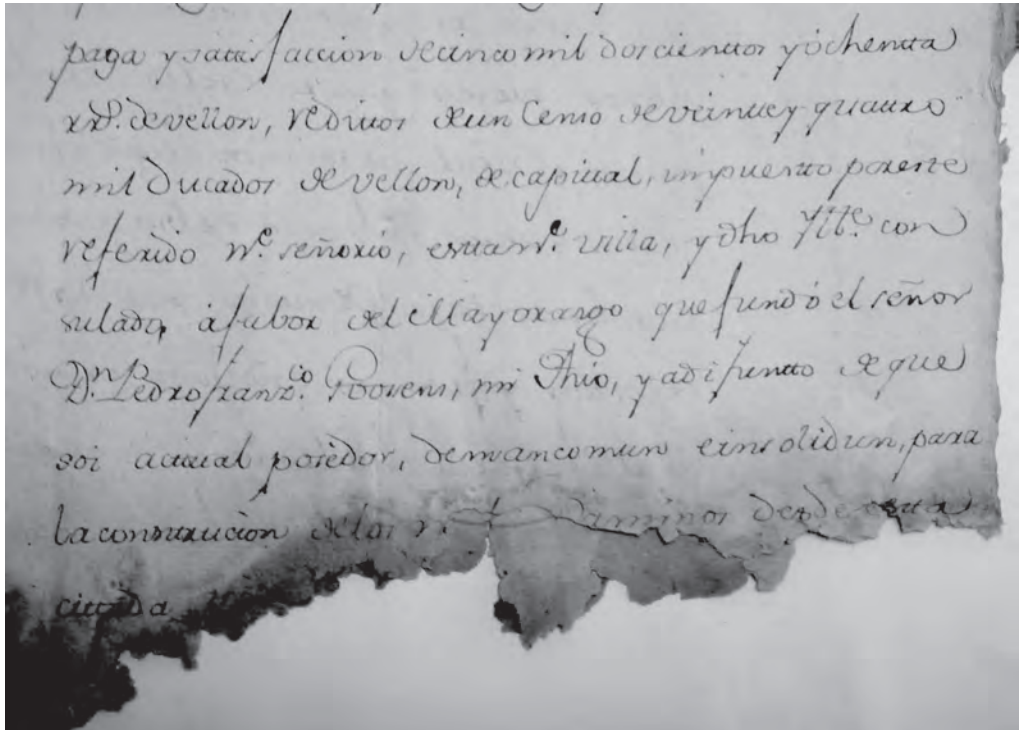 paga y satisfaccion de cinco mil dos cientos y ochenta
rrs. de vellon, reditos de un Censo de veinte y quatro
mil Ducados de vellon, de capital, impuesto por este
referido N.e señorio, esta N.e villa, y dho Ylle. con
sulado, á fabor del Mayorazgo que fundó el señor
Dn. Pedro franz.co Goosens, mi thio, ya difunto de que
soi actual posedor, de mancomun e insolidun, para
la construcion de los caminos desde esta
citada